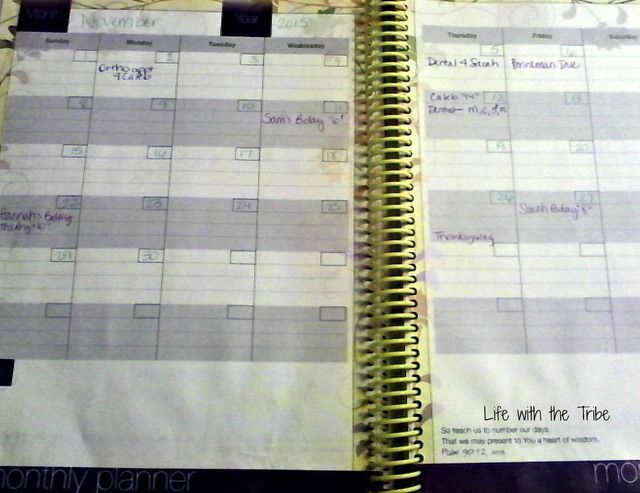 Month November Year 2015
Sunday Monday Tuesday Wednesday Thursday Friday Saturday
1 2 3 4 5 6
Ortho appt
4 Caleb
Dental 4 Sarah
Due
8 9 10 11 12 13
Sam's Bday "6"
Caleb
Dentist - M, C,
15 16 17 18 19 20
22 23 24 25 26 27
Hannah's Bday
"10"
Thanksgiving
Sarah Bday "8"
29 30
Life with the Tribe
So teach us to number our days,
That we may present to You a heart of wisdom.
Psalm 90:12,
monthly planner
mo